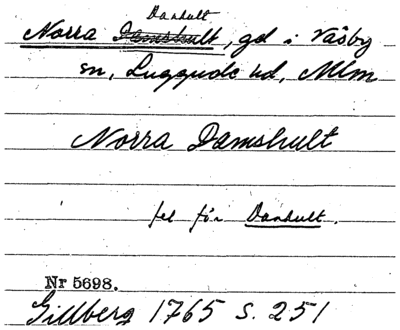 Danhult
Norra Damshult, gd i Väsby
sn, Luggude hd, Mlm
Norra Damshult
fel för Danhult.
Nr 5698.
Gillberg 1765 s. 251